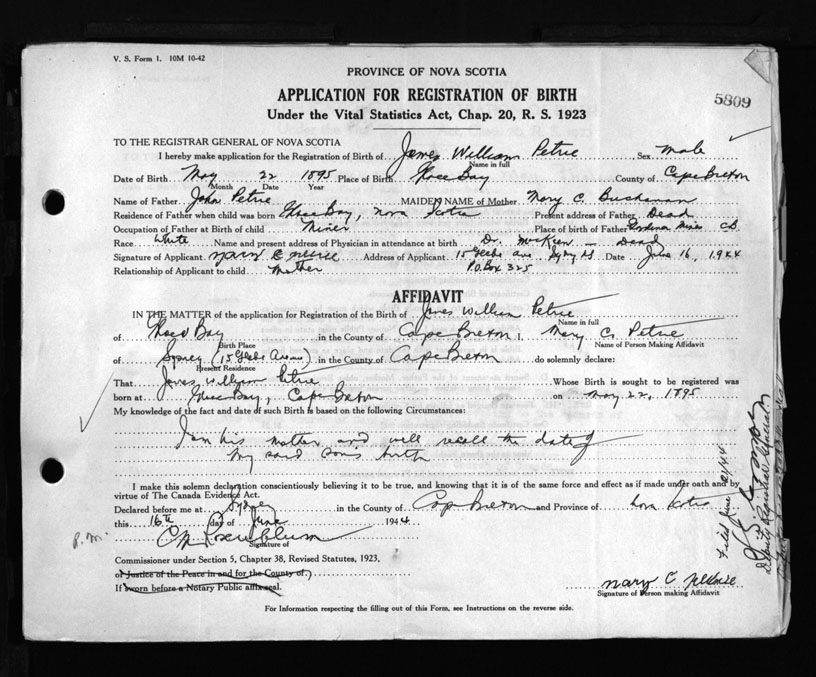 V. S. Form 1. 10M 10-42
PROVINCE OF NOVA SCOTIA
5809
APPLICATION FOR REGISTRATION OF BIRTH
Under the Vital Statistics Act, Chap. 20, R. S. 1923
TO THE REGISTRAR GENERAL OF NOVA SCOTIA
I hereby make application for the Registration of Birth of James William Petrie Sex Male
Name in full
Date of Birth May 22 1895 Place of Birth Glace Bay County of Cape Breton
Month Date Year
Name of Father John Petrie MAIDEN NAME of Mother Mary C. Buchanan
Residence of Father when child was born Glace Bay, Nova Scotia Present address of Father Dead
Occupation of Father at Birth of child Miner Place of birth of Father Gardiner Mines C.B.
Race White Name and present address of Physician in attendance at birth Dr. McKeen - Dead
Signature of Applicant Mary C Petrie Address of Applicant 15 Glebe Ave Sydney NS Date June 16, 1944
Relationship of Applicant to child Mother P.O. Box 325
AFFIDAVIT
IN THE MATTER of the application for Registration of the Birth of James William Petrie
Name in full
of Glace Bay in the County of Cape Breton I, Mary C. Petrie
Birth Place Name of Person Making Affidavit
of Sydney (15 Glebe Avenue) in the County of Cape Breton do solemnly declare:
Present Residence
That James William Petrie Whose Birth is sought to be registered was
born at Glace Bay, Cape Breton on May 22, 1895
My knowledge of the fact and date of such Birth is based on the following Circumstances:
I am his mother and well recall the date of
my said son's birth
I make this solemn declaration conscientiously believing it to be true, and knowing that it is of the same force and effect as if made under oath and by
virtue of The Canada Evidence Act.
Declared before me at Sydney in the County of Cape Breton and Province of Nova Scotia
this 16th day of June 1944
Signature of
Commissioner under Section 5, Chapter 38, Revised Statutes, 1923,
or Justice of the Peace in and for the County of
If sworn before a Notary Public affix seal.
Mary C Petrie
Signature of Person making Affidavit
For Information respecting the filling out of this Form, see Instructions on the reverse side.
Deputy Registrar General